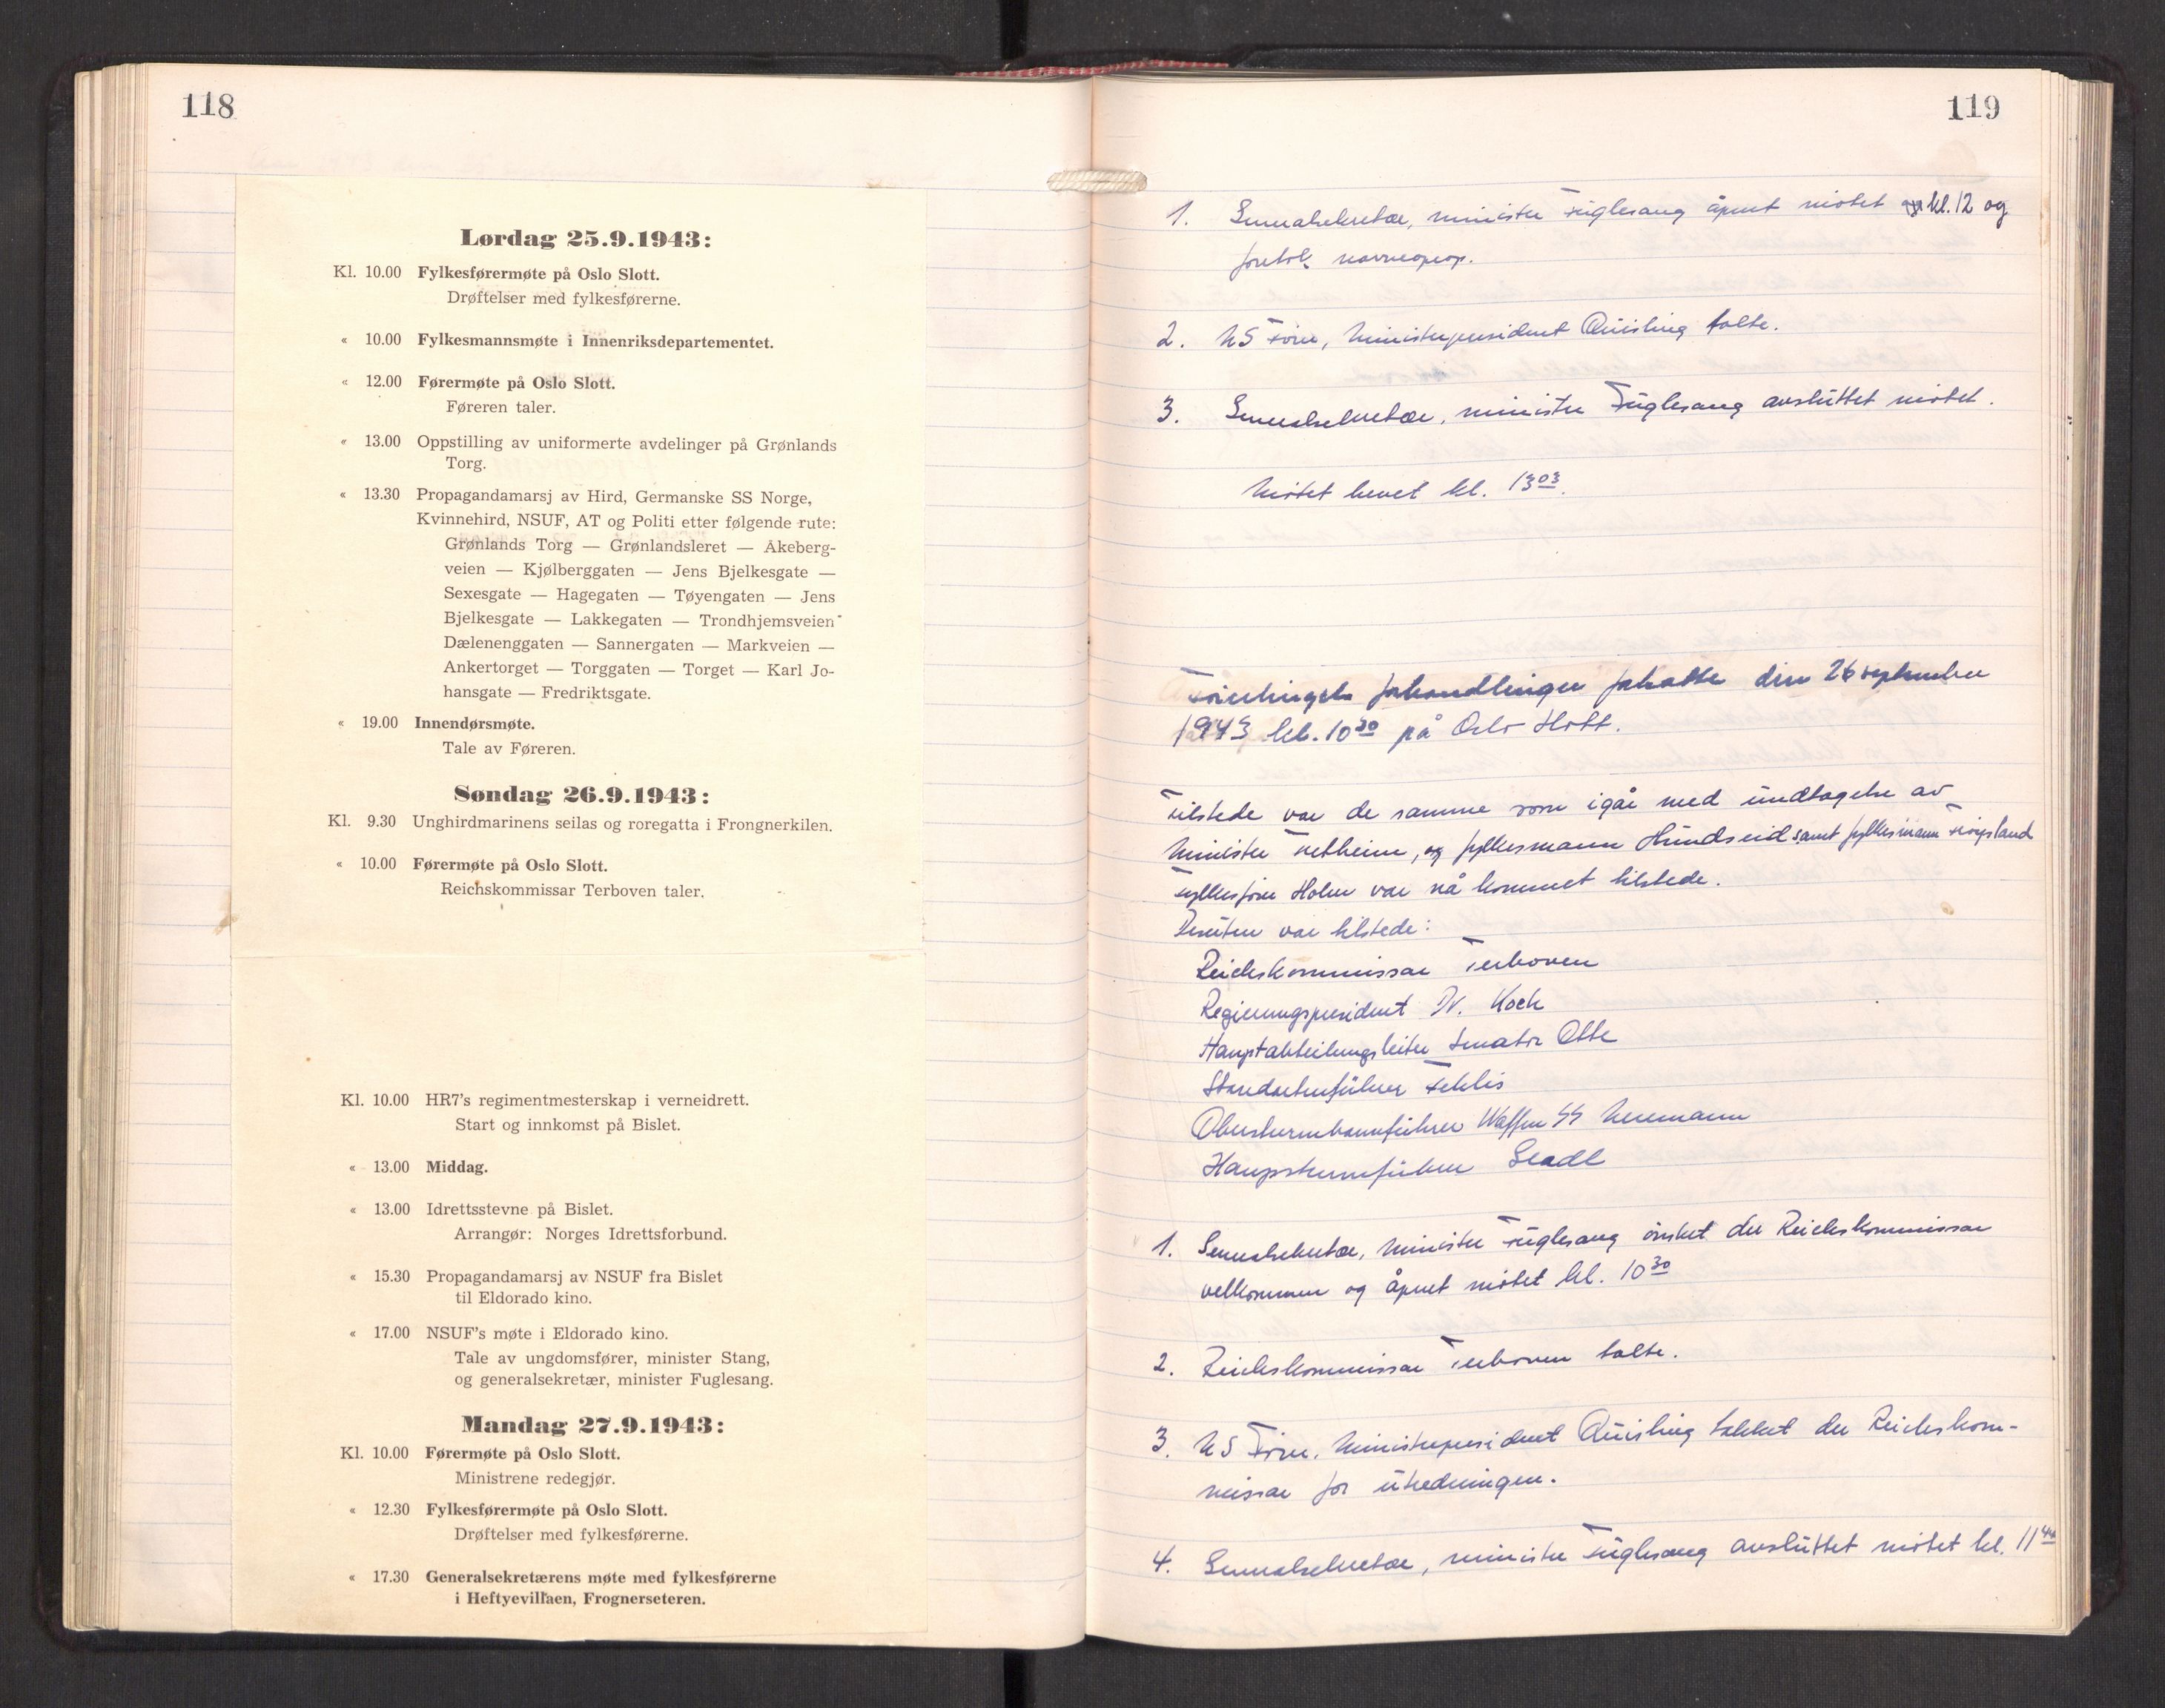 118
Lørdag 25.9.1943:
Kl. 10.00 Fylkesførermøte på Oslo Slott.
Drøftelser med fylkesførerne.
« 10.00 Fylkesmannsmøte i Innenriksdepartementet.
« 12.00 Førermøte på Oslo Slott.
Føreren taler.
« 13.00 Oppstilling av uniformerte avdelinger på Grønlands
Torg.
« 13.30 Propagandamarsj av Hird, Germanske SS Norge,
Kvinnehird, NSUF, AT og Politi etter følgende rute:
Grønlands Torg — Grønlandsleret — Åkeberg-
veien — Kjølberggaten — Jens Bjelkesgate —
Sexesgate — Hagegaten — Tøyengaten — Jens
Bjelkesgate — Lakkegaten — Trondhjemsveien
Dælenenggaten — Sannergaten — Markveien —
Ankertorget — Torggaten — Torget — Karl Jo-
hansgate — Fredriktsgate.
« 19.00 Innendørsmøte.
Tale av Føreren.
Søndag 26.9.1943:
Kl. 9.30 Unghirdmarinens seilas og roregatta i Frongnerkilen.
« 10.00 Førermøte på Oslo Slott.
Reichskommissar Terboven taler.
Kl. 10.00 HR7's regimentmesterskap i verneidrett.
Start og innkomst på Bislet.
« 13.00 Middag.
« 13.00 Idrettsstevne på Bislet.
Arrangør: Norges Idrettsforbund.
« 15.30 Propagandamarsj av NSUF fra Bislet
til Eldorado kino.
« 17.00 NSUF's møte i Eldorado kino.
Tale av ungdomsfører, minister Stang,
og generalsekretær, minister Fuglesang.
Mandag 27.9.1943:
Kl. 10.00 Førermøte på Oslo Slott.
Ministrene redegjør.
« 12.30 Fylkesførermøte på Oslo Slott.
Drøftelser med fylkesførerne.
« 17.30 Generalsekretærens møte med fylkesførerne
i Heftyevillaen, Frognerseteren.
119
1. Generalsekretær, minister Fuglesang åpnet møtet kl. 12 og
foretok navneoprop.
2. NS Fører, Ministerpresident Quisling talte.
3. Generalsekretær, minister Fuglesang avsluttet møtet.
Møtet hevet kl. 13 03.
Førertingets forhandlinger fortsatte den 26 september
1943 kl. 10 30 på Oslo Slott.
Tilstede var de samme som igår med undtagelse av
Minister Vetheim, og fylkesmann Hundseid samt fylkesmann
Fylkesfører Holm var nå kommet tilstede.
Desuten var tilstede:
Reichskommissar Terboven
Regierungspresident Dr. Koch
Hauptabteilungsleiter Senator Otte
Standartenführer Fehlis
Obersturmbannführer Waffen SS Neumann
Haupsturmführer
1. Generalsekretær, Minister Fuglesang ønsket der Reichskommissar
velkommen og åpnet møtet kl. 10 30
2. Reichskommissar Terboven talte.
3. NS Fører, Ministerpresident Quisling takket der Reichskom-
missar for utredningen.
4. Generalsekretær, minister Fuglesang avsluttet møtet kl. 11 44